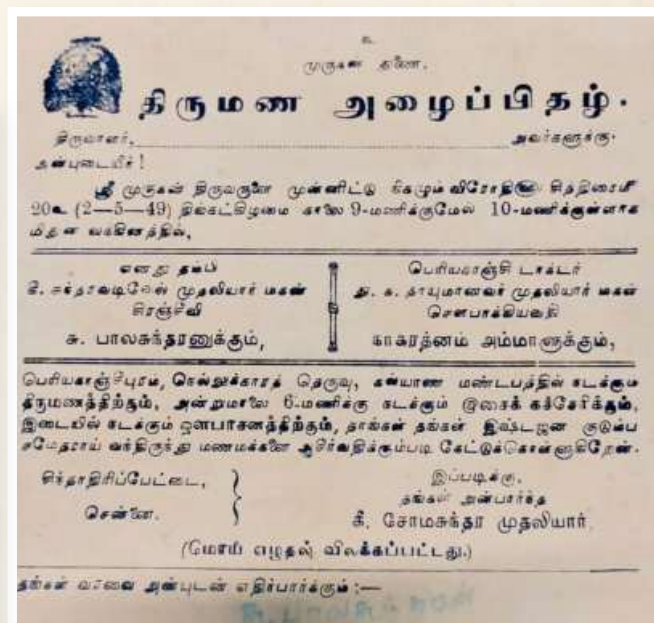 உ
முருகன் துணை.
திருமண அழைப்பிதழ்.
திருவாளர், அவர்களுக்கு.
அன்புடையீர்!
ஸ்ரீ முருகன் திருவருளை முன்னிட்டு நிகழும் விரோதி சித்திரைமீ
20உ (2—5—49) திங்கட்கிழமை காலை 9-மணிக்குமேல் 10-மணிக்குள்ளாக
மிதுன லக்கினத்தில்,
எனது தம்பி
கீ. சுந்தரவடிவேல் முதலியார் மகன்
சிரஞ்சீவி
சு. பாலசுந்தரனுக்கும்,
பெரியகாஞ்சி டாக்டர்
தி. சு. தாயுமானவர் முதலியார் மகள்
சௌபாக்கியவதி
நாகரத்னம் அம்மாளுக்கும்,
பெரியகாஞ்சீபுரம், நெல்லுக்காரத் தெருவு, கல்யாண மண்டபத்தில் நடக்கும்
திருமணத்திற்கும், அன்றுமாலை 6-மணிக்கு நடக்கும் இசைக் கச்சேரிக்கும்,
இடையில் நடக்கும் ஔபாசனத்திற்கும், தாங்கள் தங்கள் இஷ்டஜன குடும்ப
சமேதராய் வந்திருந்து மணமக்களை ஆசிர்வதிக்கும்படி கேட்டுக்கொள்ளுகிறேன்.
சிந்தாதிரிப்பேட்டை,
சென்னை.
இப்படிக்கு,
தங்கள் அன்பார்ந்த
கீ. சோமசுந்தர முதலியார்
(மொயீ எழுதல் விலக்கப்பட்டது.)
தங்கள் வரவை அன்புடன் எதிர்பார்க்கும் :—
சு. பாலசுந்தரன்